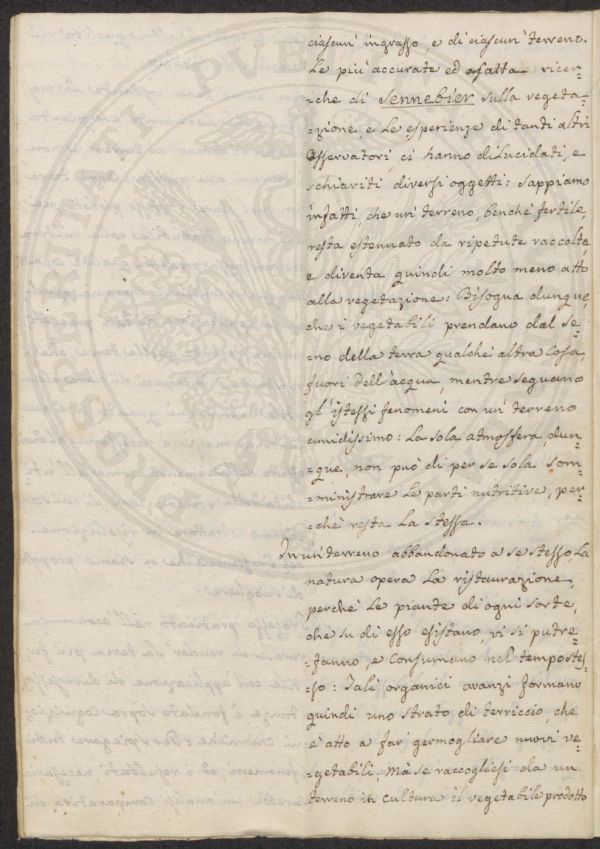 ciascun' ingrasso, e di ciascun' terreno.
Le più accurate ed esatte ricer=
=che di Sennebier sulla vegeta=
=zione, e le esperienze di tanti altri
Osservatori, ci hanno dilucidati, e
schiariti diversi oggetti: Sappiamo
infatti, che un' terreno, benchè fertile,
resta estenuato da ripetute raccolte,
e diventa quindi molto meno atto
alla vegetazione: Bisogna dunque,
che i vegetabili prendano dal se=
=no della terra qualche altra cosa,
fuori dell'acqua, mentre seguano
gl'istessi fenomeni con un' terreno
umidissimo: La sola atmosfera, dun=
=que, non può di per se sola som=
=ministrare le parti nutritive, per=
=chè resta la stessa.
In un' terreno abbandonato a se stesso, la
natura opera la ristaurazione,
perchè le piante di ogni sorte,
che su di esso esistano, vi si putre=
=fanno, e consumano nel tempo stes=
=so: Tali organici avanzi formano
quindi uno strato di terriccio, che
è atto a far germogliare nuovi ve=
=getabili. Mà se raccogliesi da un
terreno in cultura il vegetabile prodotto